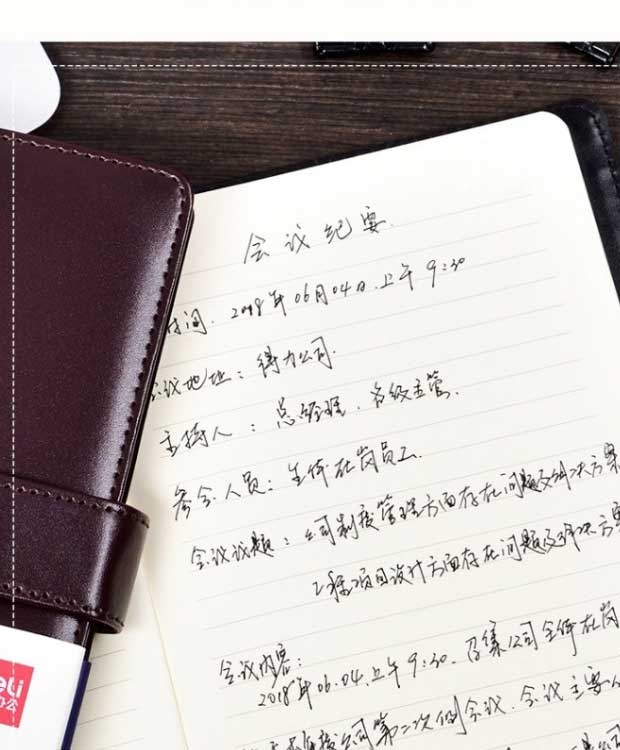 会议纪要.
时间: 2018年06月04日.上午9:30
会议地址: 得力公司.
主持人: 总经理、各级主管.
参会人员: 全体在岗员工.
会议议题: 公司制度管理方面存在问题及解决方案
工程项目设计方面存在问题及解决方案
会议内容:
2018年06.04.上午9:30.召集公司全体在岗
公司第二次例会议.会议主要
eli
办公